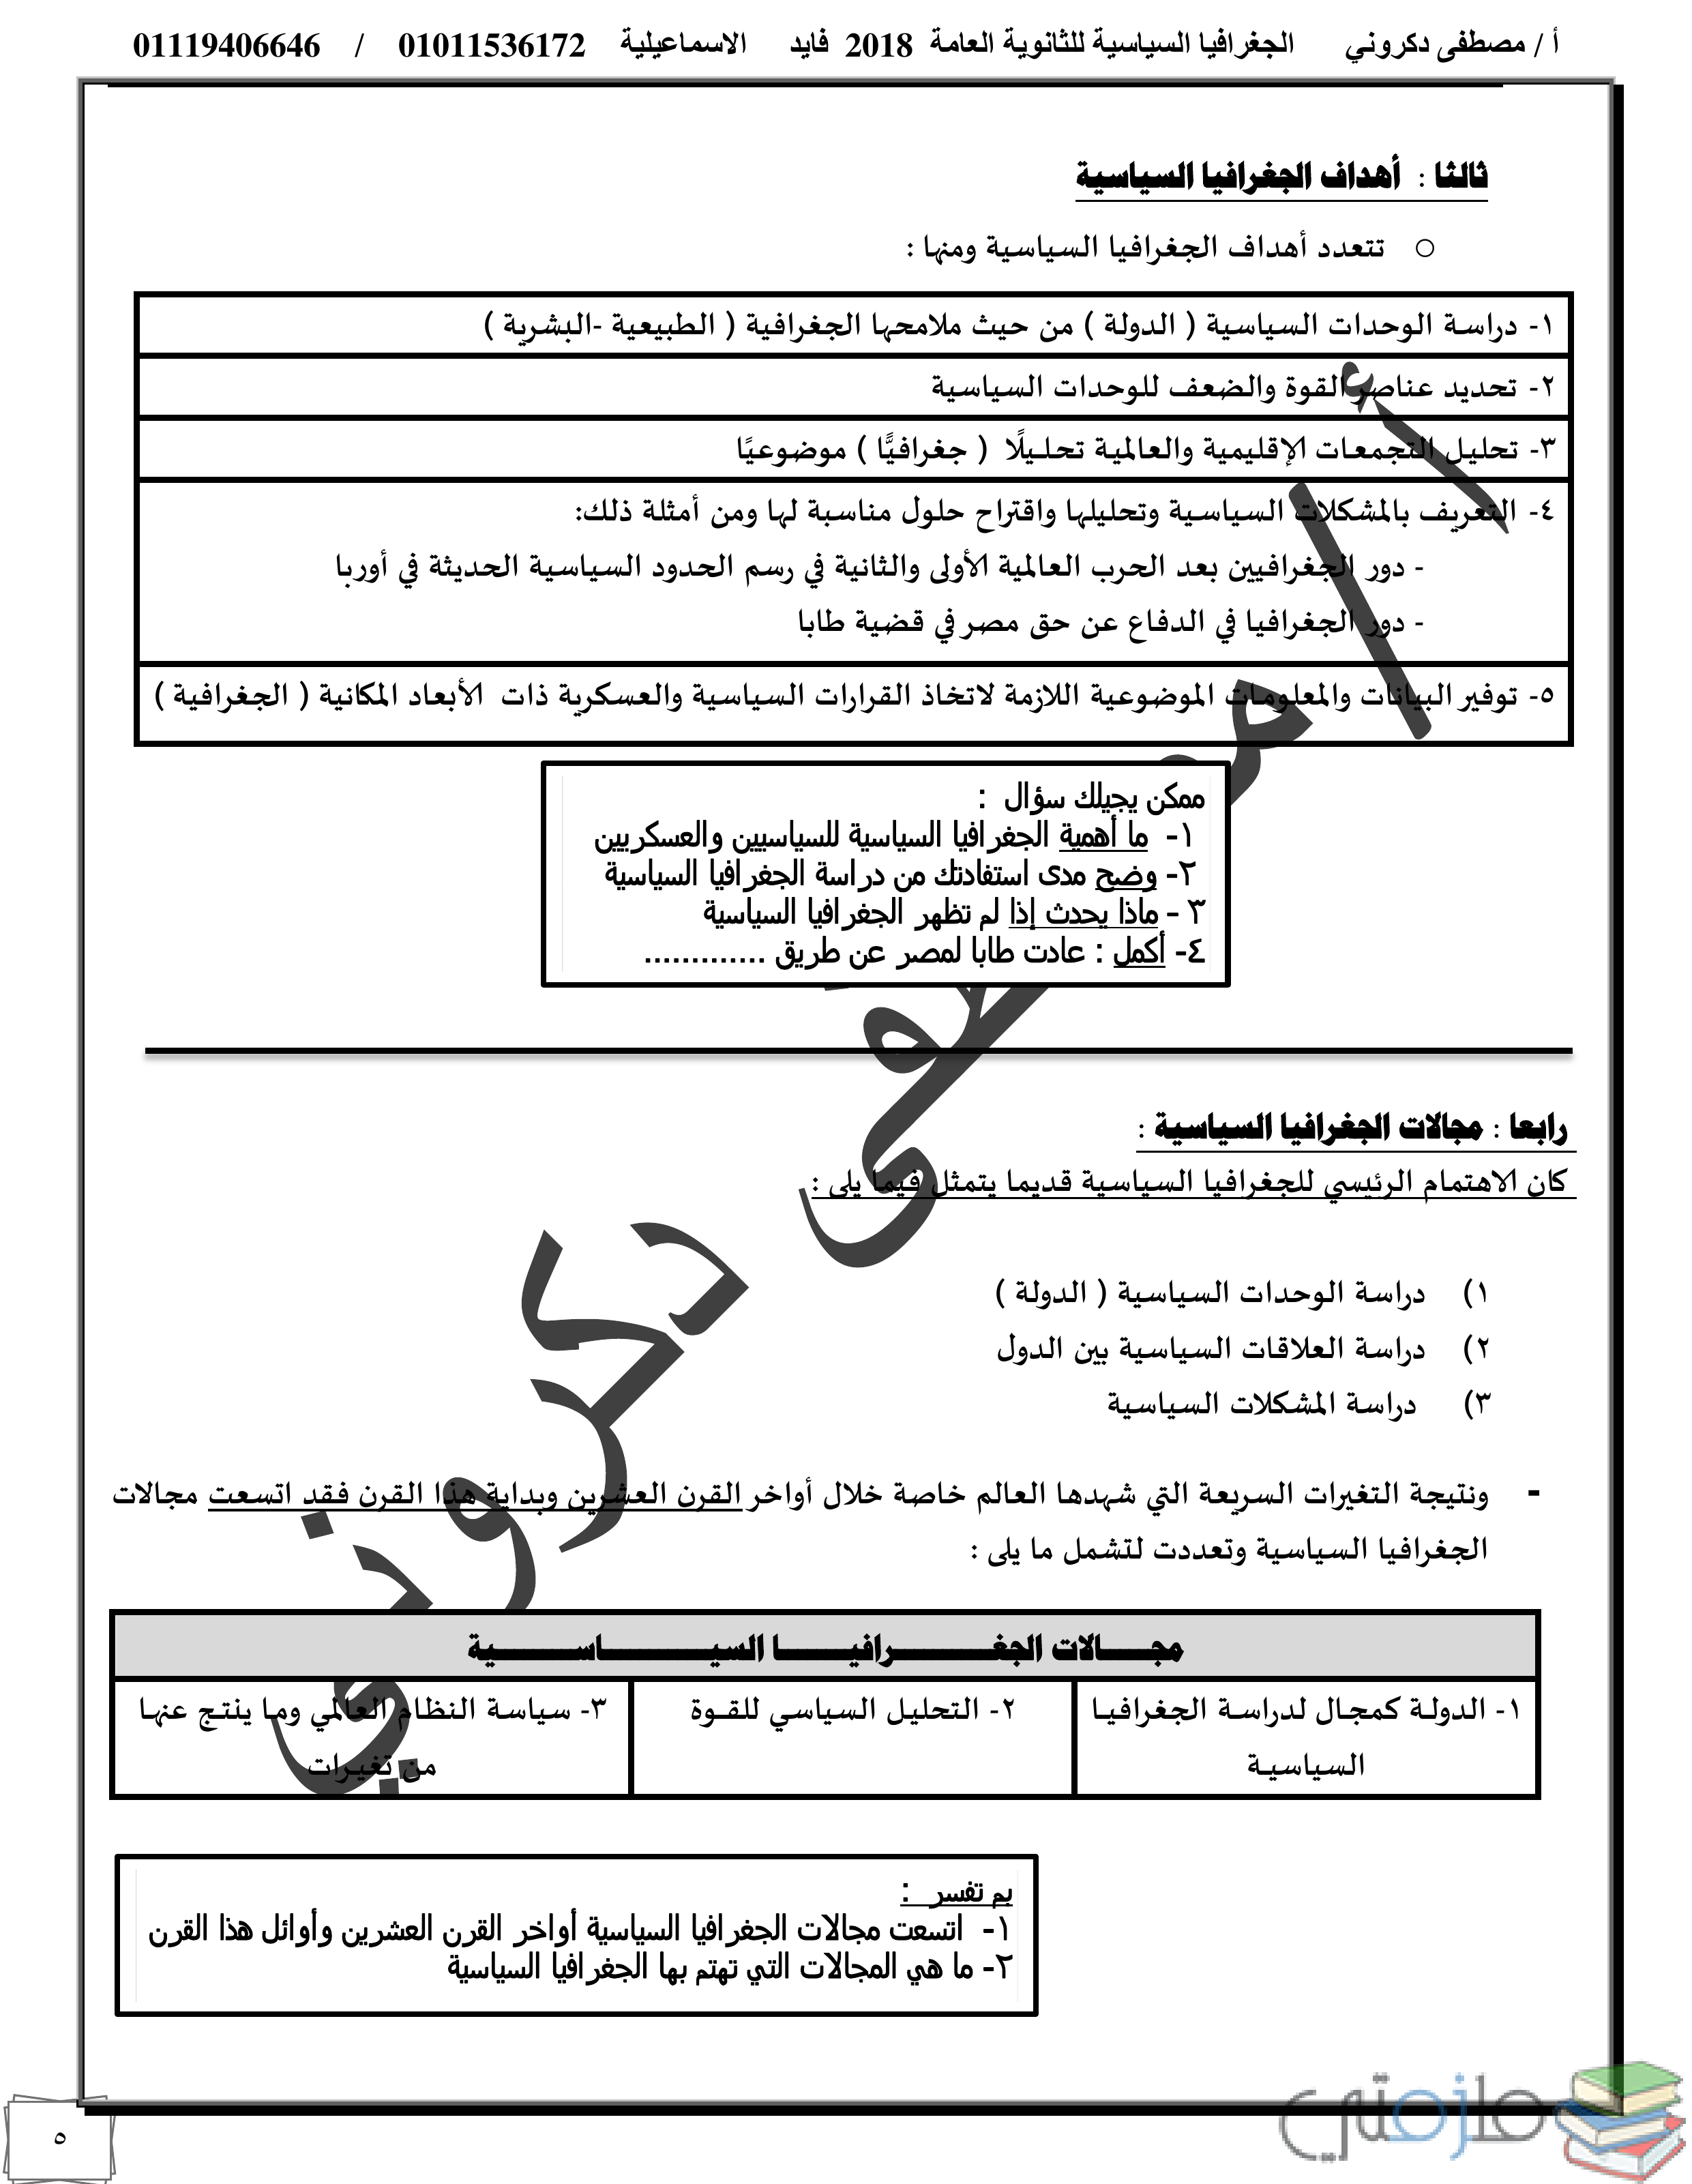 أ / مصطفى دكروني الجغرافيا السياسية للثانوية العامة 2018 فايد الاسماعيلية 01011536172 / 01119406646
ثالثا : أهداف الجغرافيا السياسية
تتعدد أهداف الجغرافيا السياسية ومنها :
١- دراسة الوحدات السياسية ( الدولة ) من حيث ملامحها الجغرافية ( الطبيعية -البشرية )
٢- تحديد عناصر القوة والضعف للوحدات السياسية
٣- تحليل التجمعات الإقليمية والعالمية تحليلًا ( جغرافيًّا ) موضوعيًا
٤- التعريف بالمشكلات السياسية وتحليلها واقتراح حلول مناسبة لها ومن أمثلة ذلك:
- دور الجغرافيين بعد الحرب العالمية الأولى والثانية في رسم الحدود السياسية الحديثة في أوربا
- دور الجغرافيا في الدفاع عن حق مصر في قضية طابا
٥- توفير البيانات والمعلومات الموضوعية اللازمة لاتخاذ القرارات السياسية والعسكرية ذات الأبعاد المكانية ( الجغرافية )
ممكن يجيلك سؤال :
١- ما أهمية الجغرافيا السياسية للسياسيين والعسكريين
٢- وضح مدى استفادتك من دراسة الجغرافيا السياسية
٣ - ماذا يحدث إذا لم تظهر الجغرافيا السياسية
٤- أكمل : عادت طابا لمصر عن طريق .............
رابعا : مجالات الجغرافيا السياسية :
كان الاهتمام الرئيسي للجغرافيا السياسية قديما يتمثل فيما يلى :
١) دراسة الوحدات السياسية ( الدولة )
٢) دراسة العلاقات السياسية بين الدول
٣) دراسة المشكلات السياسية
- ونتيجة التغيرات السريعة التي شهدها العالم خاصة خلال أواخر القرن العشرين وبداية هذا القرن فقد اتسعت مجالات
الجغرافيا السياسية وتعددت لتشمل ما يلى :
مجـــالات الجغـــــرافيـــــا السيـــــاســـــية
١- الدولة كمجال لدراسة الجغرافيا
السياسية
٢- التحليل السياسي للقوة
٣- سياسة النظام العالمي وما ينتج عنها
من تغيرات
بم تفسر :
١- اتسعت مجالات الجغرافيا السياسية أواخر القرن العشرين وأوائل هذا القرن
٢- ما هي المجالات التي تهتم بها الجغرافيا السياسية
أ / مصطفى دكروني
ملازمتي
٥